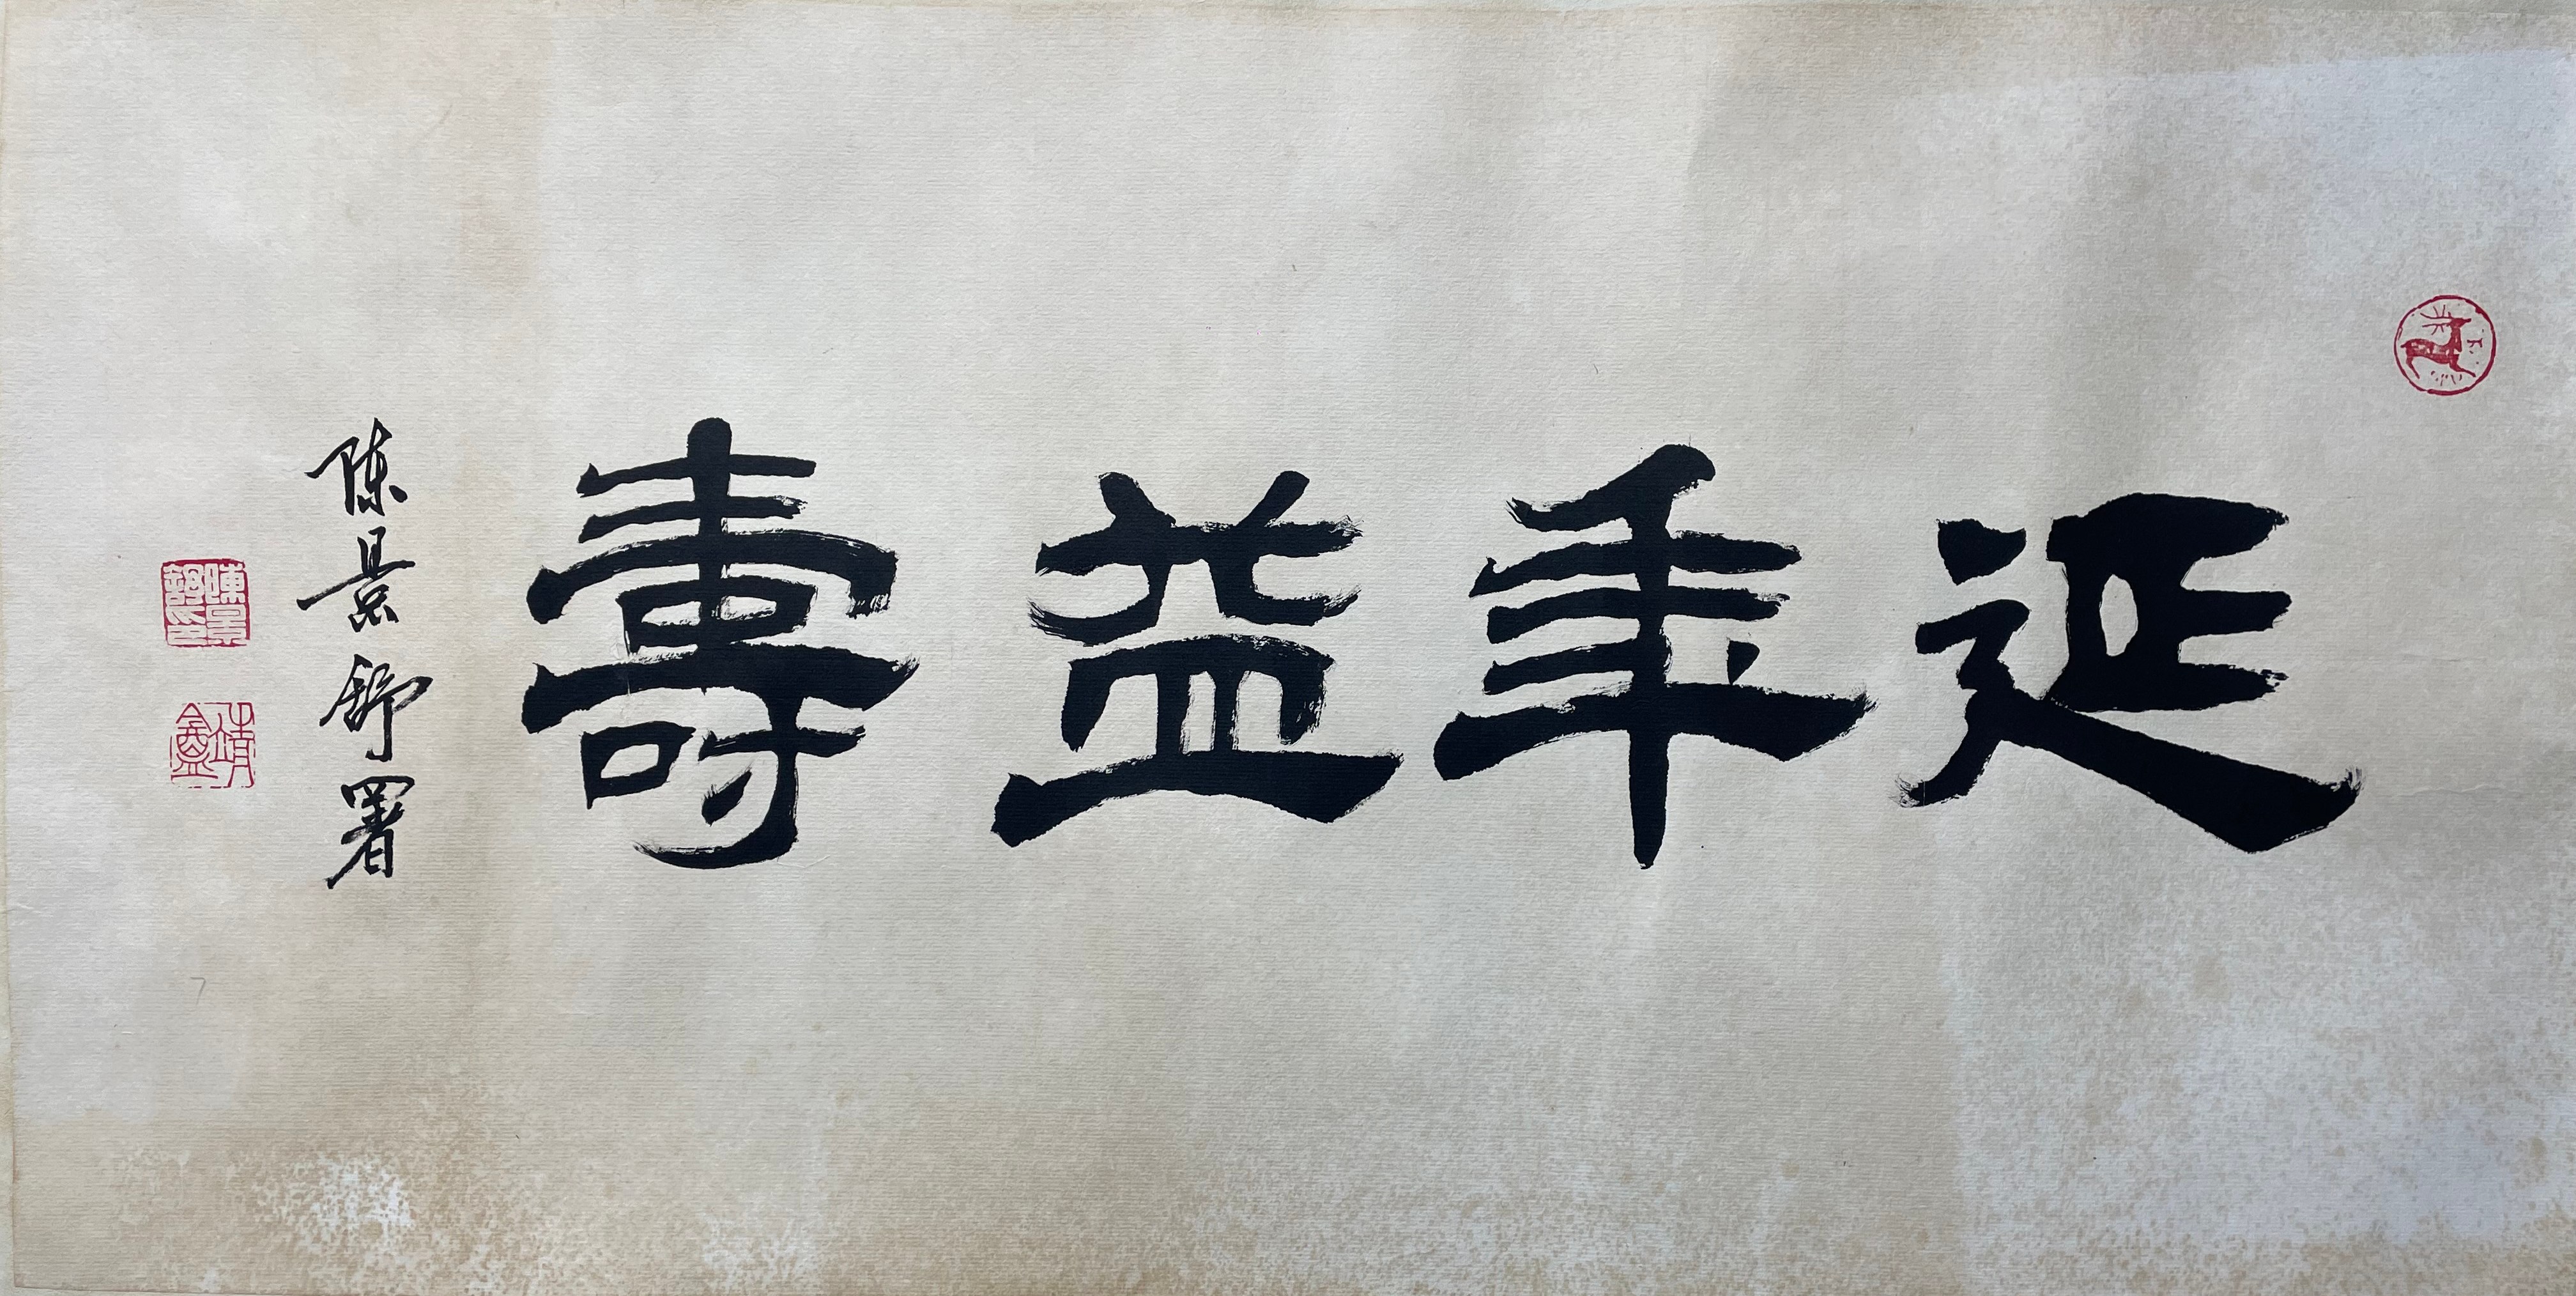 延年益壽
陈景舒署
陳景舒印
靖盦